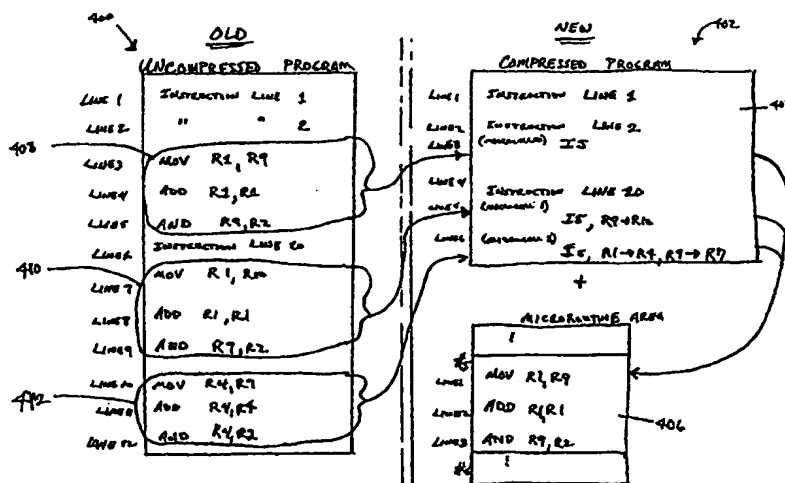 400
OLD
UNCOMPRESSED PROGRAM
LINE 1 INSTRUCTION LINE 1
LINE 2 " " 2
408
LINE 3 MOV R1, R9
LINE 4 ADD R1, R1
LINE 5 AND R9, R2
LINE 6 INSTRUCTION LINE 20
410
LINE 7 MOV R1, R10
LINE 8 ADD R1, R1
LINE 9 AND R9, R2
412
LINE 10 MOV R4, R7
LINE 11 ADD R4, R4
LINE 12 AND R4, R2
NEW
402
COMPRESSED PROGRAM
LINE 1 INSTRUCTION LINE 1
LINE 2 INSTRUCTION LINE 2
LINE 3 I5
LINE 4 INSTRUCTION LINE 20
LINE 5 I5, R9→R10
LINE 6 I5, R1→R4, R9→R7
+
MICROROUTINE AREA
LINE 1 MOV R1, R9
LINE 2 ADD R1, R1
406
LINE 3 AND R9, R2